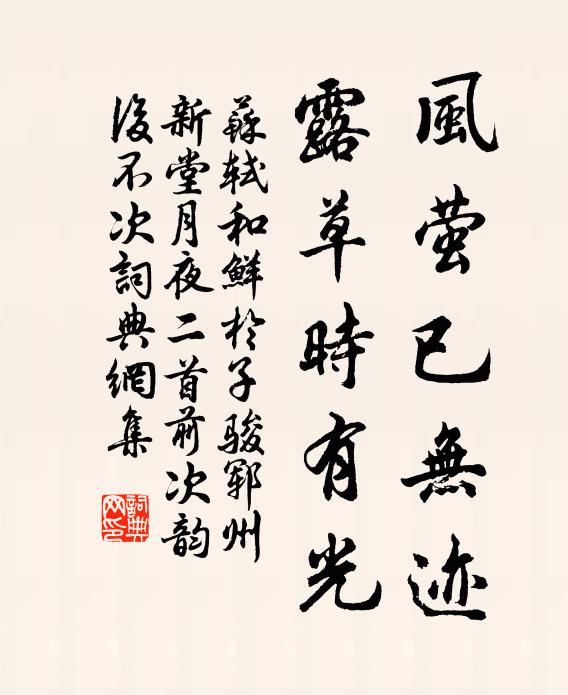 風萤已無迹
露草時有光
蘇軾和鮮於子駿鄆州
新堂月夜二首前次韵
後不次詞典網集
詞典
网印